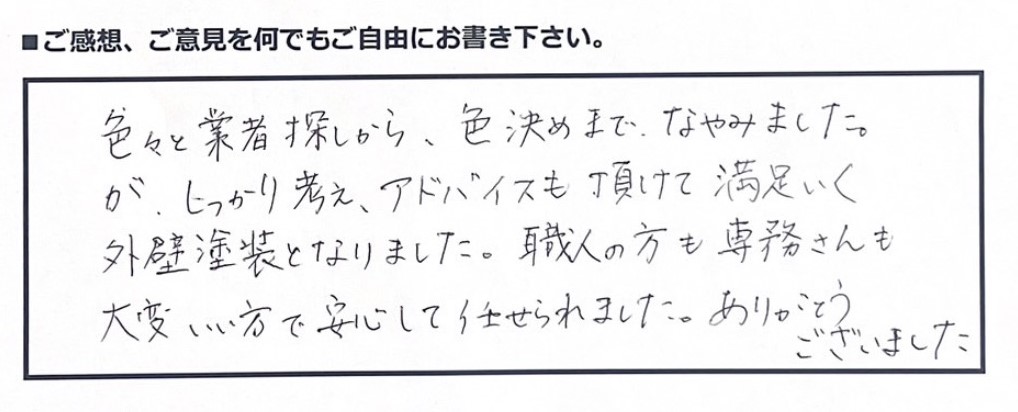 ■ご感想、ご意見を何でもご自由にお書き下さい。
色々と業者探しから、色決めまで、なやみました。
が、しっかり考え、アドバイスも頂けて満足いく
外壁塗装となりました。職人の方も専務さんも
大変いい方で安心して任せられました。ありがとう
ございました